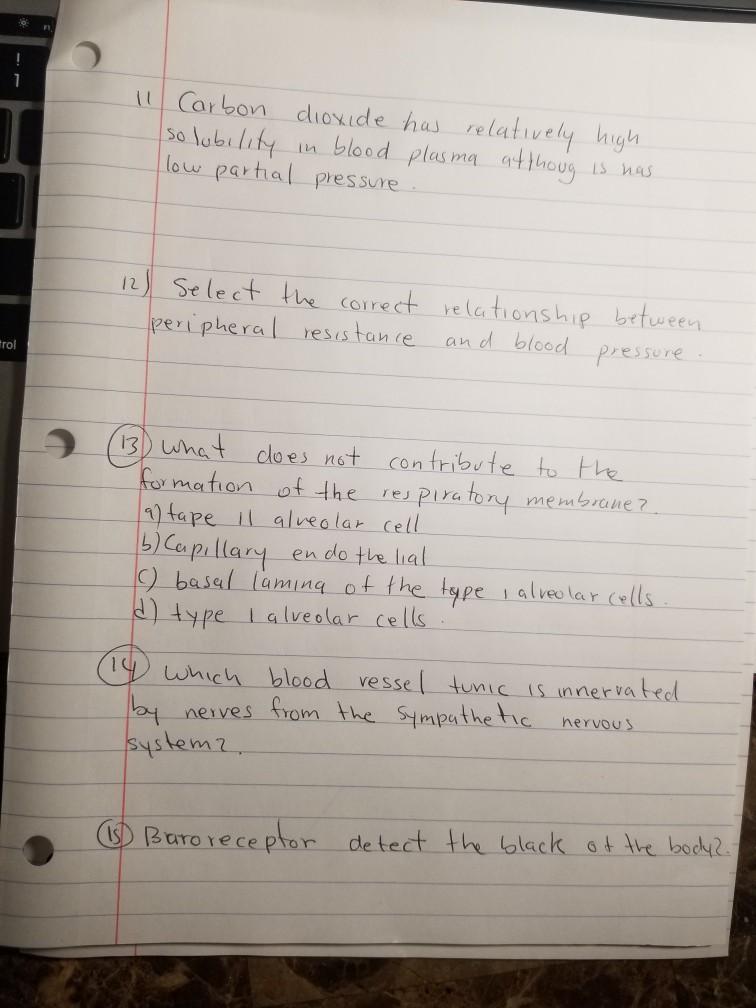 n
!
1
trol
11 Carbon dioxide has relatively high
solubility in blood plasma atthoug is has
low partial pressure.
12) Select the correct relationship between
peripheral resistance and blood pressure.
13) What does not contribute to the
formation of the respiratory membrane?
a) tape II alveolar cell
b) Capillary endothelial
c) basal lamina of the type I alveolar cells.
d) type I alveolar cells.
14) Which blood vessel tunic is innervated
by nerves from the sympathetic nervous
system?.
15) Baroreceptor detect the black of the body?.